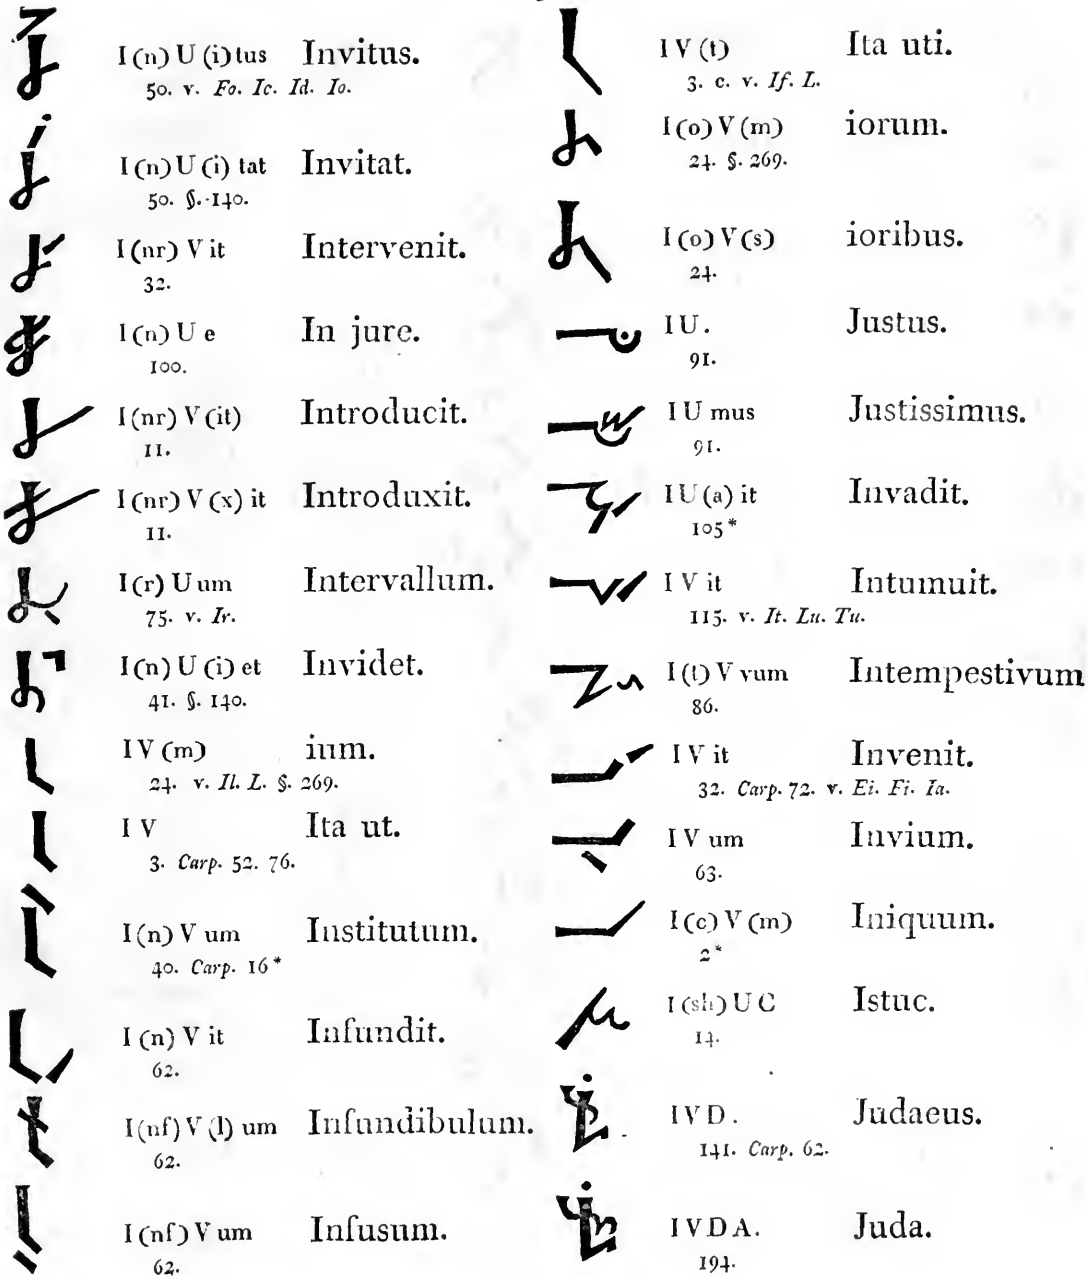 I (n) U (i) tus Invitus.
50. v. Fo. Ic. Id. Io.
I (n) U (i) tat Invitat.
50. §. 140.
I (nr) V it Intervenit.
32.
I (n) U e In jure.
100.
I (nr) V (it) Introducit.
11.
I (nr) V (x) it Introduxit.
11.
I (r) U um Intervallum.
75. v. Ir.
I (n) U (i) et Invidet.
41. §. 140.
I V (m) ium.
24. v. Il. L. §. 269.
I V Ita ut.
3. Carp. 52. 76.
I (n) V um Inſtitutum.
40. Carp. 16*
I (n) V it Infundit.
62.
I (nf) V (l) um Infundibulum.
62.
I (nf) V um Infuſum.
62.
I V (t) Ita uti.
3. c. v. If. L.
I (o) V (m) iorum.
24. §. 269.
I (o) V (s) ioribus.
24.
I U. Juſtus.
91.
I U mus Juſtissimus.
91.
I U (a) it Invadit.
105*
I V it Intumuit.
115. v. It. Lu. Tu.
I (t) V vum Intempeſtivum
86.
I V it Invenit.
32. Carp. 72. v. Ei. Fi. Ia.
I V um Invium.
63.
I (c) V (m) Iniquum.
2*
I (sh) U C Iſtuc.
14.
I V D. Judaeus.
141. Carp. 62.
I V D A. Juda.
194.